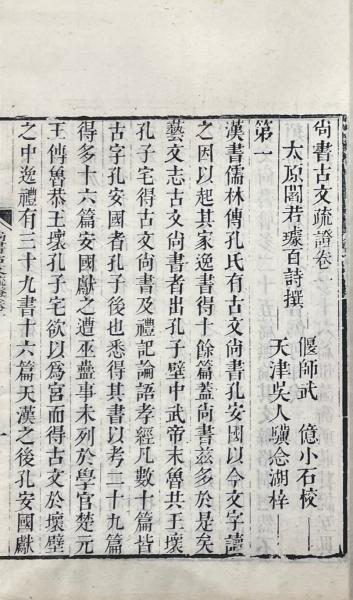 尚書古文疏證卷一
太原閻若璩百詩撰
偃師武 億小石校
天津吳人驥念湖梓
第一
漢書儒林傳孔氏有古文尚書孔安國以今文字讀
之因以起其家逸書得十餘篇蓋尚書茲多於是矣
藝文志古文尚書者出孔子壁中武帝末魯共王壞
孔子宅得古文尚書及禮記論語孝經凡數十篇皆
古字孔安國者孔子後也悉得其書以考二十九篇
得多十六篇安國獻之遭巫蠱事未列於學官楚元
王傳魯恭王壞孔子宅欲以爲宮而得古文於壞壁
之中逸禮有三十九書十六篇天漢之後孔安國獻